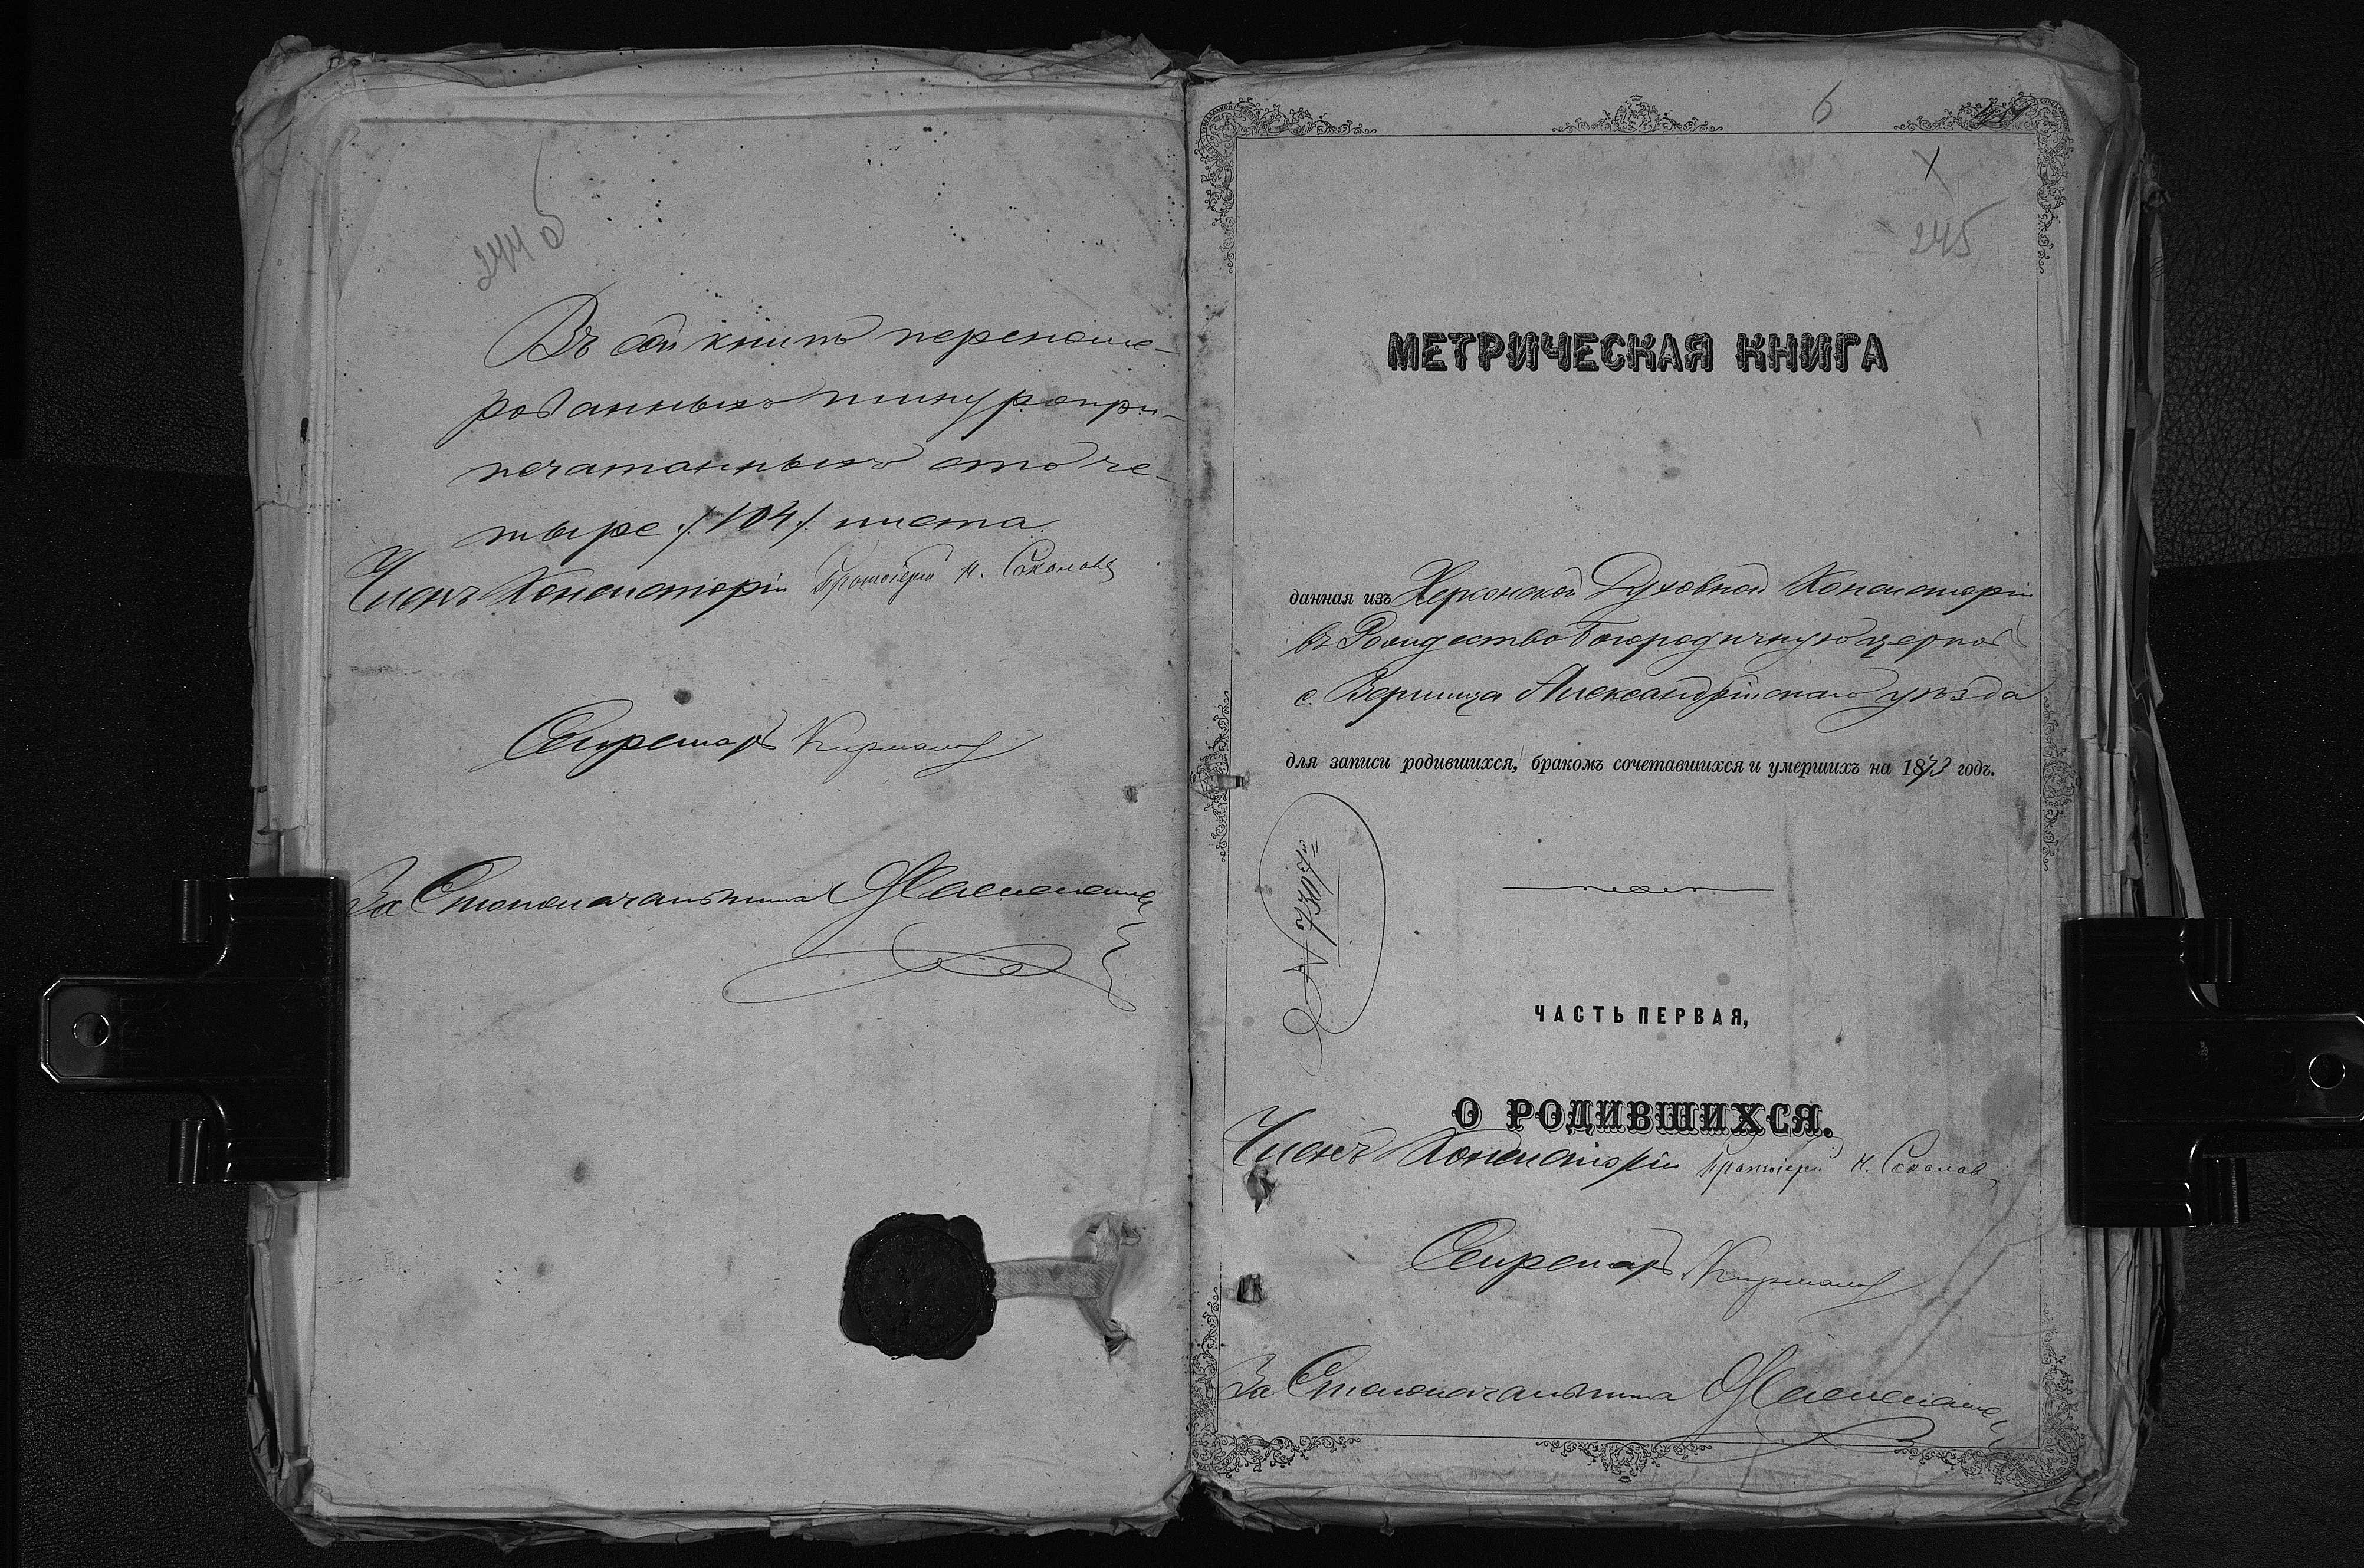 244 б
Въ сей книгѣ перенуме-
рованныхъ шнуропри-
печатанныхъ сто че-
тыре /104/ листа.
Членъ Консисторіи Протоіерей Н. Соколовъ
Секретарь
За Столоначальника
6
X
245
МЕТРИЧЕСКАЯ КНИГА
данная изъ Херсонской Духовной Консисторіи
въ Рождество Богородичную церковь
с. Вершица Александрійскаго уѣзда
для записи родившихся, бракомъ сочетавшихся и умершихъ на 1873 годъ.
№ 7307
ЧАСТЬ ПЕРВАЯ,
О РОДИВШИХСЯ.
Членъ Консисторіи Протоіерей Н. Соколовъ
Секретарь
За Столоначальника